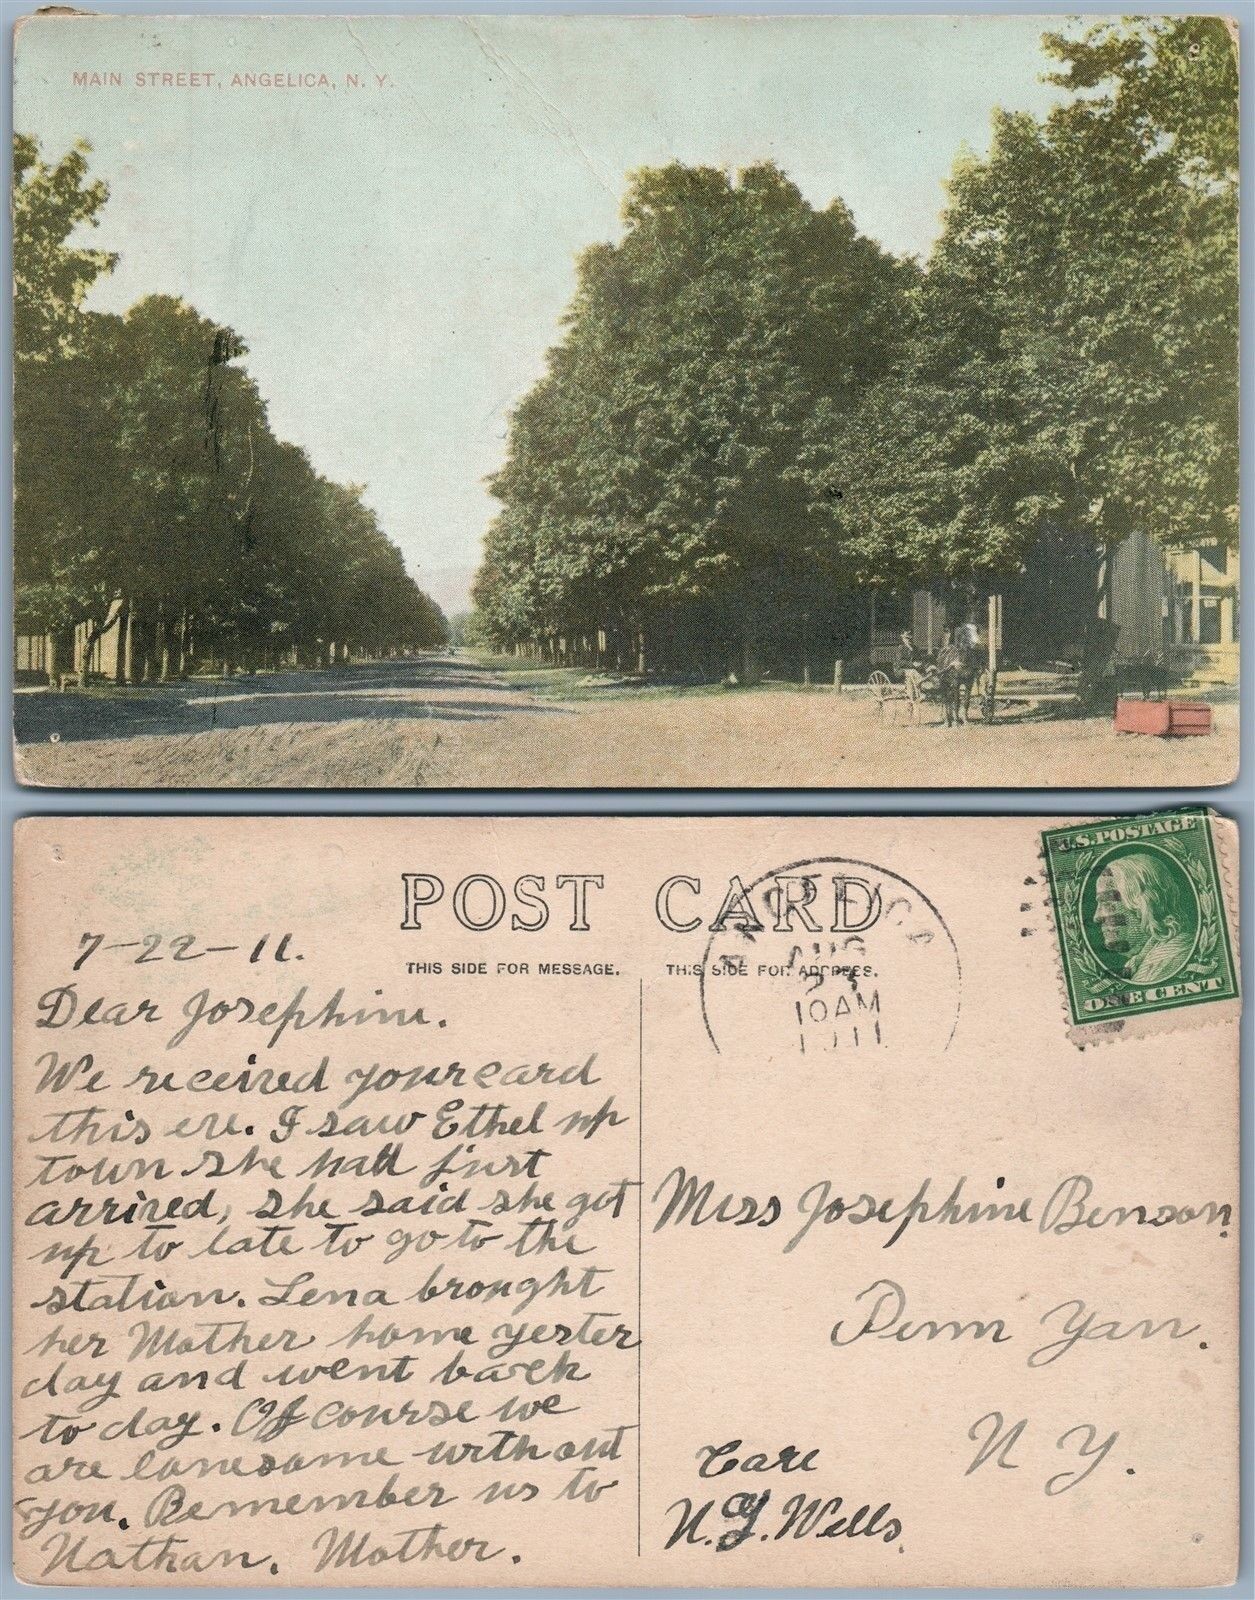 MAIN STREET, ANGELICA, N. Y.
POST CARD
THIS SIDE FOR MESSAGE. THIS SIDE FOR ADDRESS.
ANGELICA
AUG
10AM
1911
U.S. POSTAGE
ONE CENT
7-22-11.
Dear Josephine.
We received your card
this eve. I saw Ethel up
town she had just
arrived, she said she got
up to late to go to the
station. Lena brought
her Mother home yester
day and went back
to day. Of course we
are lonesome without
you. Remember us to
Nathan. Mother.
Miss Josephine Benson.
Penn Yan.
N Y.
Care
N. Y. Wells.